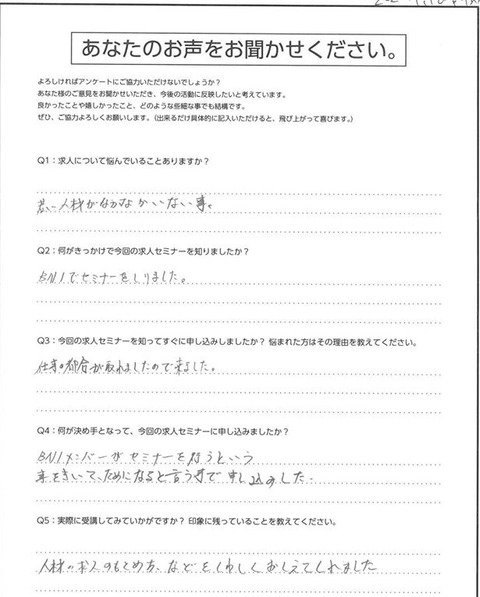 あなたのお声をお聞かせください。
よろしければアンケートにご協力いただけないでしょうか？
あなた様のご意見をお聞かせいただき、今後の活動に反映したいと考えています。
良かったことや嬉しかったこと、どのような些細な事でも結構です。
ぜひ、ご協力よろしくお願いします。（出来るだけ具体的に記入いただけると、飛び上がって喜びます。）
Q1：求人について悩んでいることありますか？
若い人材がなかなかいない事。
Q2：何がきっかけで今回の求人セミナーを知りましたか？
BNIでセミナーをしりました。
Q3：今回の求人セミナーを知ってすぐに申し込みしましたか？ 悩まれた方はその理由を教えてください。
仕事の都合が取れましたので来ました。
Q4：何が決め手となって、今回の求人セミナーに申し込みましたか？
BNIメンバーがセミナーを行うという
事をきいて、ためになると言う事で申し込みした.
Q5：実際に受講してみていかがですか？ 印象に残っていることを教えてください。
人材の求人のもとめ方、などをくわしくおしえてくれました